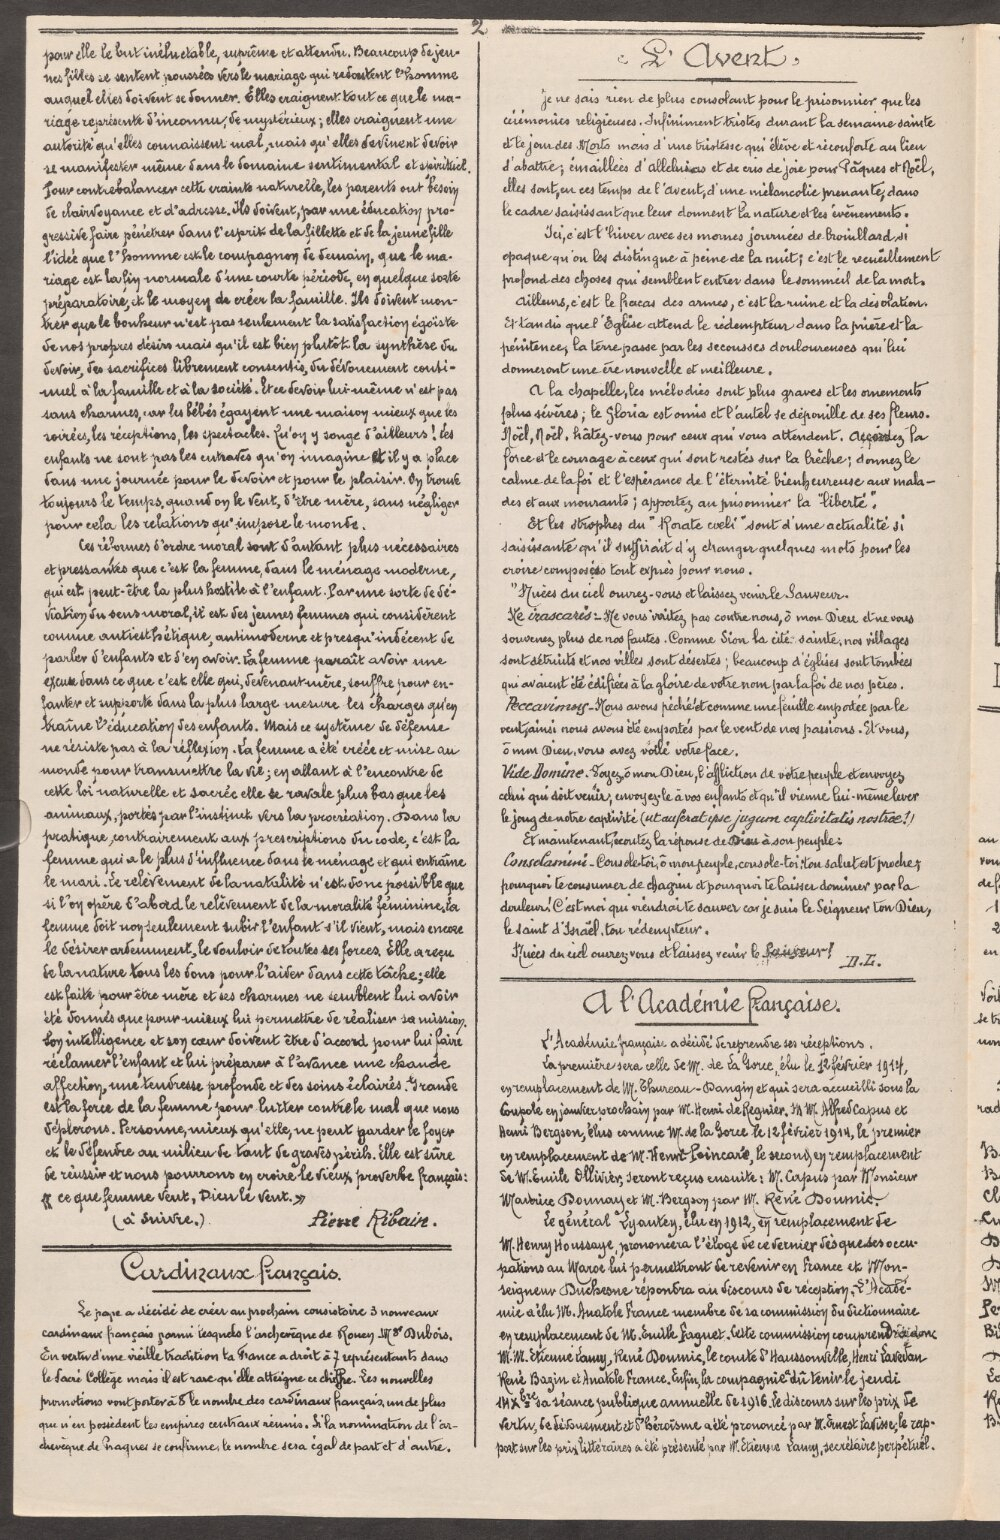 2
pour elle le but inéluctable, suprême et attendu. Beaucoup de jeu-
nes filles se sentent poussées vers le mariage qui redoutent l'homme
auquel elles doivent se donner. Elles craignent tout ce que le ma-
riage représente d'inconnu, de mystérieux; elles craignent une
autorité qu'elles connaissent mal, mais qu'elles devinent devoir
se manifester même dans le domaine sentimental et spirituel.
Pour contrebalancer cette crainte naturelle, les parents ont besoin
de clairvoyance et d'adresse. Ils doivent, par une éducation pro-
gressive faire pénétrer dans l'esprit de la fillette et de la jeune fille
l'idée que l'homme est le compagnon de demain, que le ma-
riage est la fin normale d'une courte période, en quelque sorte
préparatoire, et le moyen de créer la famille. Ils doivent mon-
trer que le bonheur n'est pas seulement la satisfaction égoïste
de nos propres désirs mais qu'il est bien plutôt la synthèse du
devoir, des sacrifices librement consentis, du dévouement conti-
nuel à la famille et à la société. Et ce devoir lui-même n'est pas
sans charmes, car les bébés égayent une maison mieux que les
soirées, les réceptions, les spectacles. Qu'on y songe d'ailleurs! Les
enfants ne sont pas les entraves qu'on imagine et il y a place
dans une journée pour le devoir et pour le plaisir. On trouve
toujours le temps, quand on le veut, d'être mère, sans négliger
pour cela les relations qu'impose le monde.
Ces réformes d'ordre moral sont d'autant plus nécessaires
et pressantes que c'est la femme, dans le ménage moderne,
qui est peut-être la plus hostile à l'enfant. Par une sorte de dé-
viation du sens moral, il est des jeunes femmes qui considèrent
comme antiesthétique, antimoderne et presqu'indécent de
parler d'enfants et d'en avoir. La femme paraît avoir une
excuse dans ce que c'est elle qui, devenant mère, souffre pour en-
fanter et supporte dans la plus large mesure les charges qu'en
traîne l'éducation des enfants. Mais ce système de défense
ne résiste pas à la réflexion. La femme a été créée et mise au
monde pour transmettre la vie; en allant à l'encontre de
cette loi naturelle et sacrée elle se ravale plus bas que les
animaux, portés par l'instinct vers la procréation. Dans la
pratique, contrairement aux prescriptions du code, c'est la
femme qui a le plus d'influence dans le ménage et qui entraîne
le mari. Le relèvement de la natalité n'est donc possible que
si l'on opère d'abord le relèvement de la moralité féminine, la
femme doit non seulement subir l'enfant s'il vient, mais encore
le désirer ardemment, le vouloir de toutes ses forces. Elle a reçu
de la nature tous les dons pour l'aider dans cette tâche; elle
est faite pour être mère et ses charmes ne semblent lui avoir
été donnés que pour mieux lui permettre de réaliser sa mission.
Son intelligence et son cœur doivent être d'accord pour lui faire
réclamer l'enfant et lui préparer à l'avance une chaude
affection, une tendresse profonde et des soins éclairés. Grande
est la force de la femme pour lutter contre le mal que nous
déplorons. Personne, mieux qu'elle, ne peut garder le foyer
et le défendre au milieu de tant de graves périls. Elle est sûre
de réussir et nous pourrons en croire le vieux proverbe français:
« ce que femme veut, Dieu le veut.»
(à suivre.) Pierre Ribain.
Cardinaux français.
Le pape a décidé de créer au prochain consistoire 3 nouveaux
cardinaux français parmi lesquels l'archevêque de Rouen Mgr Dubois.
En vertu d'une vieille tradition la France a droit à 7 représentants dans
le Sacré Collège mais il est rare qu'elle atteigne ce chiffre. Les nouvelles
promotions vont porter à 8 le nombre des cardinaux français, un de plus
que n'en possèdent les empires centraux réunis. Si la nomination de l'ar-
chevêque de Prague se confirme, le nombre sera égal de part et d'autre.
L'Avent.
Je ne sais rien de plus consolant pour le prisonnier que les
cérémonies religieuses. Infiniment tristes durant la semaine sainte
et le jour des Morts mais d'une tristesse qui élève et réconforte au lieu
d'abattre; émaillées d'alleluias et de cris de joie pour Pâques et Noël,
elles sont, en ces temps de l'avent, d'une mélancolie prenante, dans
le cadre saisissant que leur donnent la nature et les événements.
Ici, c'est l'hiver avec ses mornes journées de brouillard, si
opaque qu'on les distingue à peine de la nuit; c'est le recueillement
profond des choses qui semblent entrer dans le sommeil de la mort.
Ailleurs, c'est le fracas des armes, c'est la ruine et la désolation.
Et tandis que l'Eglise attend le rédempteur dans la prière et la
pénitence, la terre passe par les secousses douloureuses qui lui
donneront une ère nouvelle et meilleure.
A la chapelle, les mélodies sont plus graves et les ornements
plus sévères; le Gloria est omis et l'autel se dépouille de ses fleurs.
Noël, Noël, hâtez-vous pour ceux qui vous attendent. Accordez la
force et le courage à ceux qui sont restés sur la brèche; donnez le
calme de la foi et l'espérance de l'éternité bienheureuse aux mala-
des et aux mourants; apportez au prisonnier la "liberté".
Et les strophes du "Rorate cœli" sont d'une actualité si
saisissante qu'il suffirait d'y changer quelques mots pour les
croire composées tout exprès pour nous.
"Nuées du ciel ouvrez-vous et laissez venir le Sauveur.
Ne irascaris - Ne vous irritez pas contre nous, ô mon Dieu et ne vous
souvenez plus de nos fautes. Comme Sion la cité sainte, nos villages
sont détruits et nos villes sont désertes; beaucoup d'églises sont tombées
qui avaient été édifiées à la gloire de votre nom par la foi de nos pères.
Peccavimus - Nous avons péché et comme une feuille emportée par le
vent, ainsi nous avons été emportés par le vent de nos passions. Et vous,
ô mon Dieu, vous avez voilé votre face.
Vide Domine. Voyez, ô mon Dieu, l'affliction de votre peuple et envoyez
celui qui doit venir, envoyez-le à vos enfants et qu'il vienne lui-même lever
le joug de notre captivité (ut auferat ipse jugum captivitatis nostræ!)
Et maintenant, écoutez la réponse de Dieu à son peuple:
Consolamini - Console-toi, ô mon peuple, console-toi: ton salut est proche;
pourquoi te consumer de chagrin et pourquoi te laisser dominer par la
douleur. C'est moi qui viendrai te sauver car je suis le Seigneur ton Dieu,
le saint d'Israël, ton rédempteur.
Nuées du ciel ouvrez-vous et laissez venir le Sauveur!
D.L.
A l'Académie française.
L'Académie française a décidé de reprendre ses réceptions.
La première sera celle de M. de la Gorce, élu le 12 février 1914,
en remplacement de M. Thureau-Dangin et qui sera accueilli sous la
Coupole en janvier prochain par M. Henri de Regnier. M.M. Alfred Capus et
Henri Bergson, élus comme M. de la Gorce le 12 février 1914, le premier
en remplacement de M. Henri Poincaré, le second en remplacement
de M. Emile Ollivier, seront reçus ensuite: M. Capus par Monsieur
Maurice Donnay et M. Bergson par M. René Doumic.
Le général Lyautey, élu en 1912, en remplacement de
M. Henry Houssaye, prononcera l'éloge de ce dernier dès que ses occu-
pations au Maroc lui permettront de revenir en France et Mon-
seigneur Duchesne répondra au discours de réception. L'Acadé-
mie a élu M. Anatole France membre de sa commission du dictionnaire
en remplacement de M. Emile Faguet. Cette commission comprendra donc
M.M. Etienne Lamy, René Doumic, le comte d'Haussonville, Henri Lavedan
René Bazin et Anatole France. Enfin, la compagnie a dû tenir le jeudi
14 Xbre sa séance publique annuelle de 1916, le discours sur les prix de
vertu, de dévouement et d'héroïsme a été prononcé par M. Ernest Lavisse, le rap-
port sur les prix littéraires a été présenté par M. Etienne Lamy, secrétaire perpétuel.